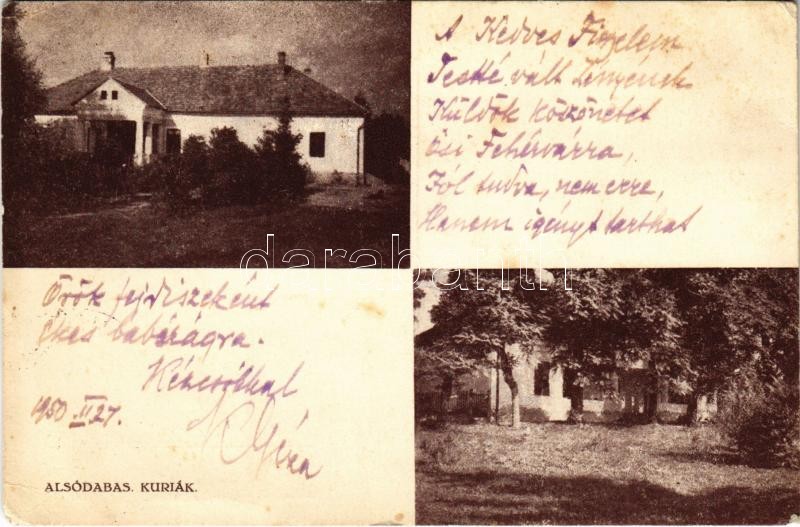 A Kedves Figyelem
Testté vált Lényének
Küldök köszönetet
Ősi Fehérvárra,
Jól tudva, nem erre,
Hanem igényt tarthat
darabanth
Örök fejdíszeként
Ékes babérágra.
Kézcsókkal
1950 II 27.
Géza
ALSÓDABAS. KURIÁK.